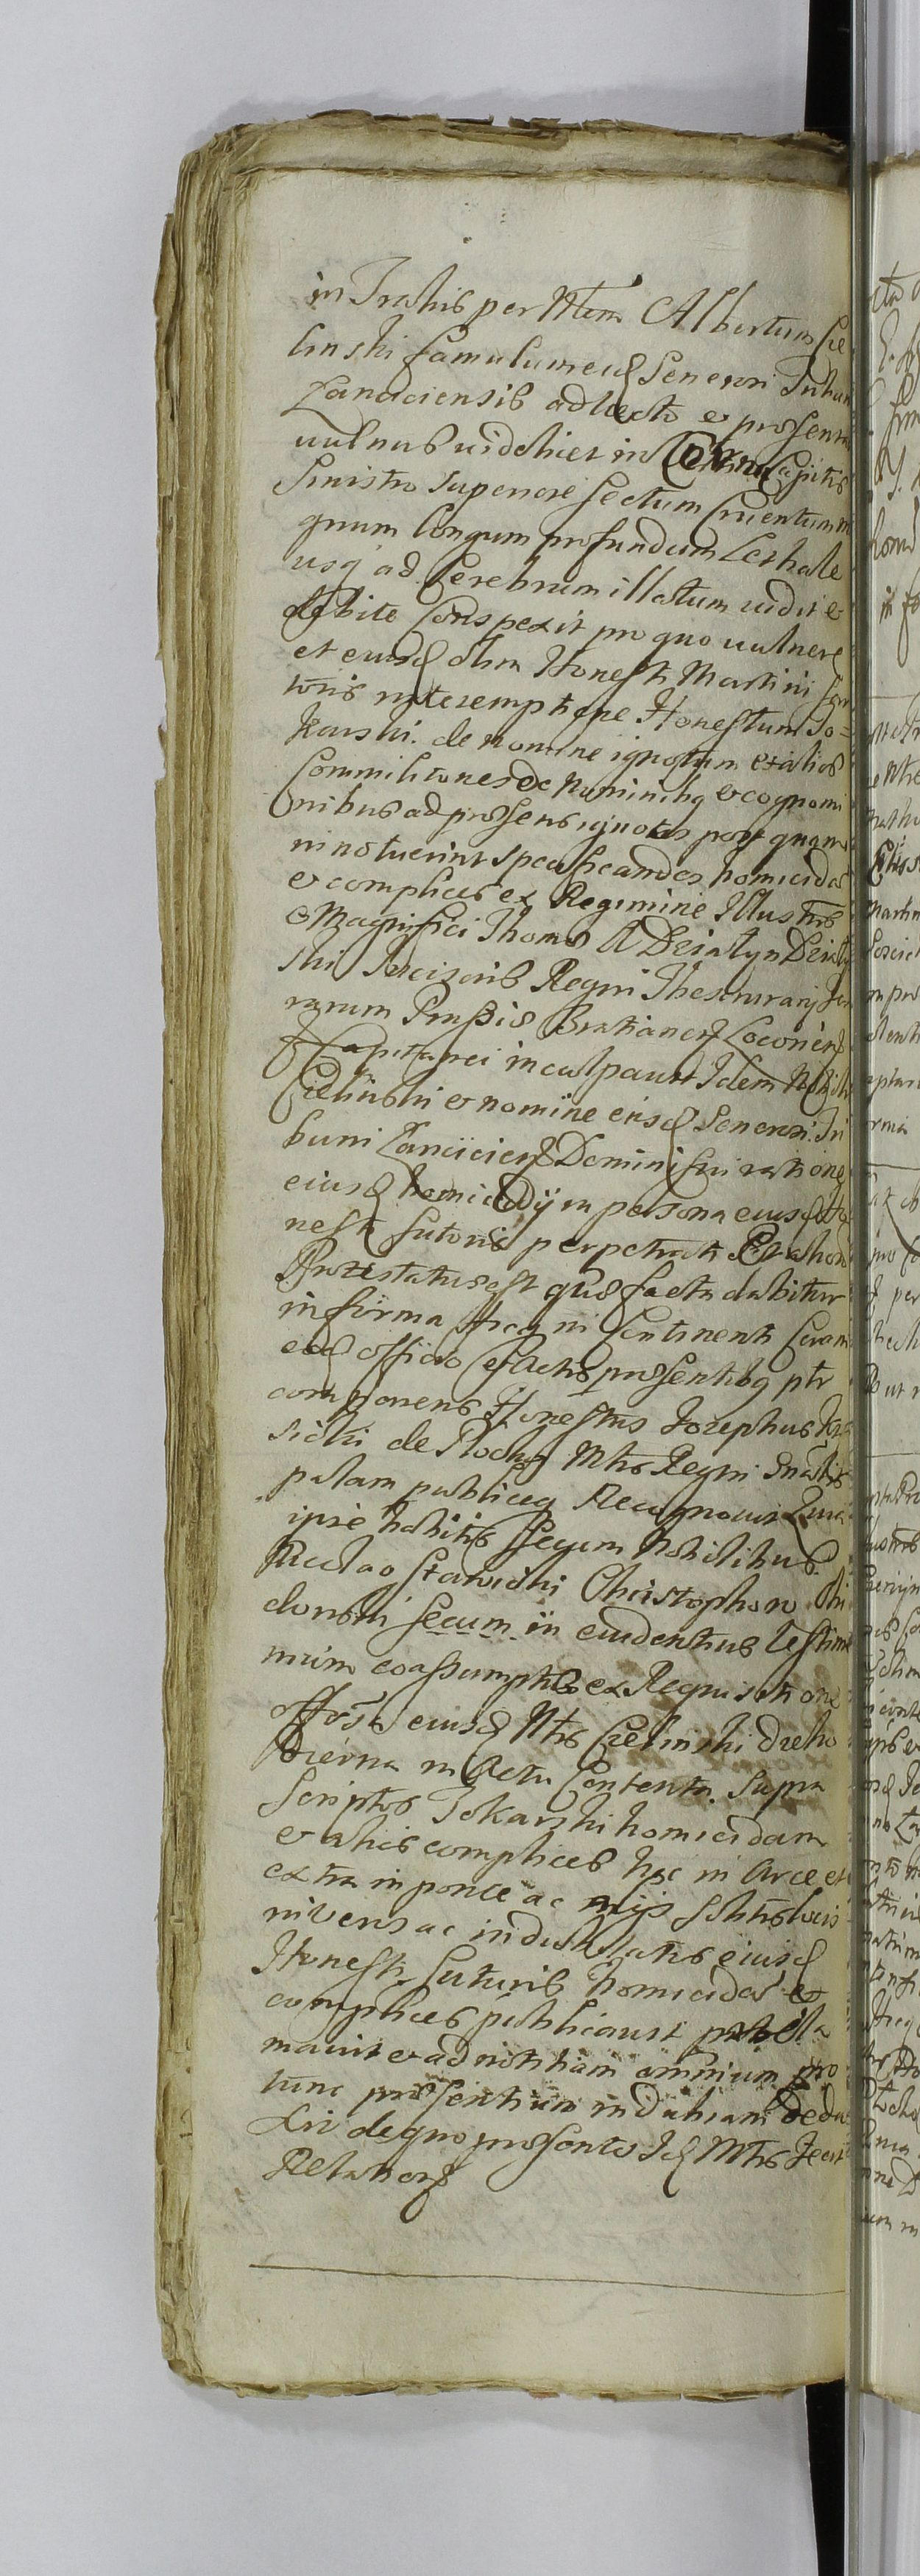 in Trahis per Ntem Albertum Cie
linski famulum eiusd Generosi Tribun
Lanciciensis adlecto et præsenta
uulnus uidelicet in Capitis
Sinistro superiore sectum Cruentum m
gnum longum profundum Lethale
usq ad Cerebrum illatum uidit et
debite Conspexit pro quo uulnere
et eiusd olim Honesti Martini Su
toris interemptione Honestum To=
karski de nomine ignotum et alios
Commilitones de Nominibg et cognomi
nibus ad præsens ignotos postquam
innotuerint specificandos homicidas
et complices ex Regimine Illustris
Magnifici Thomæ A Deialyn Deialy
ski Incisoris Regni Thesaurarij Ter
rarum Prussiæ Bratianens
Capitanei inculpauit Idem Nobilis
Cielinski et nomine eiusd Generosi Tri
buni Lanciciens Domini sui ratione
eiusd homicidij in persona eiusd Ho
nesti Sutoris perpetrati
Protestatus est quæ facta dabitur
in forma Hic in Continenti Coram
eod officio et Actis præsentibg ptr
comparens Honestus Josephus
sicki de Mtris Regni Gnalis
palam publiceq Recognouit Quia
ipse habitis secum Nobilibus
Nicolao Stawicki Christophoro
dowski secum in euidentius Testimo
nium coassumptis ex Requisitione
offosa eiusd Ntis Cielinski die ho
dierna in Actu Contenta supra
Scriptos Tokarski homicidam
et alios complices hic in Arce et
extra in ponte ac uijs solitis locis
niuersac indubitatos eiusd
Honesti Sutoris homicidas et
complices publicauit procla
mauit et ad notitiam omnium pro
tunc præsentium indubiam dedu
xit de quo præsentis Id Mtris fecit
Relations